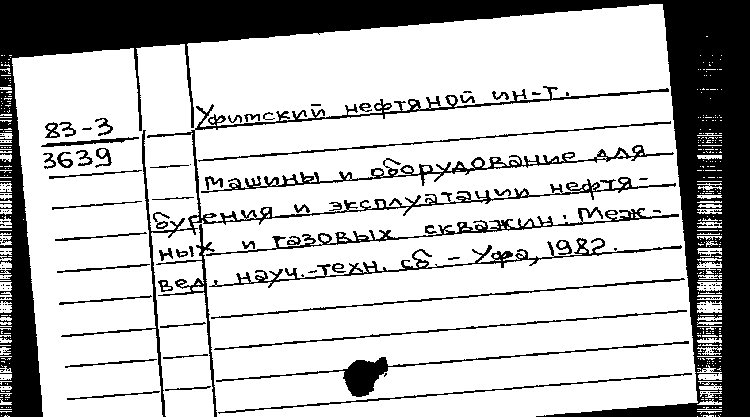 83-3
3639
Уфимский нефтяной ин-т.
Машины и оборудование для
бурения и эксплуатации нефтя-
ных и газовых скважин: Меж-
вед. науч.-техн. сб. – Уфа, 1982.